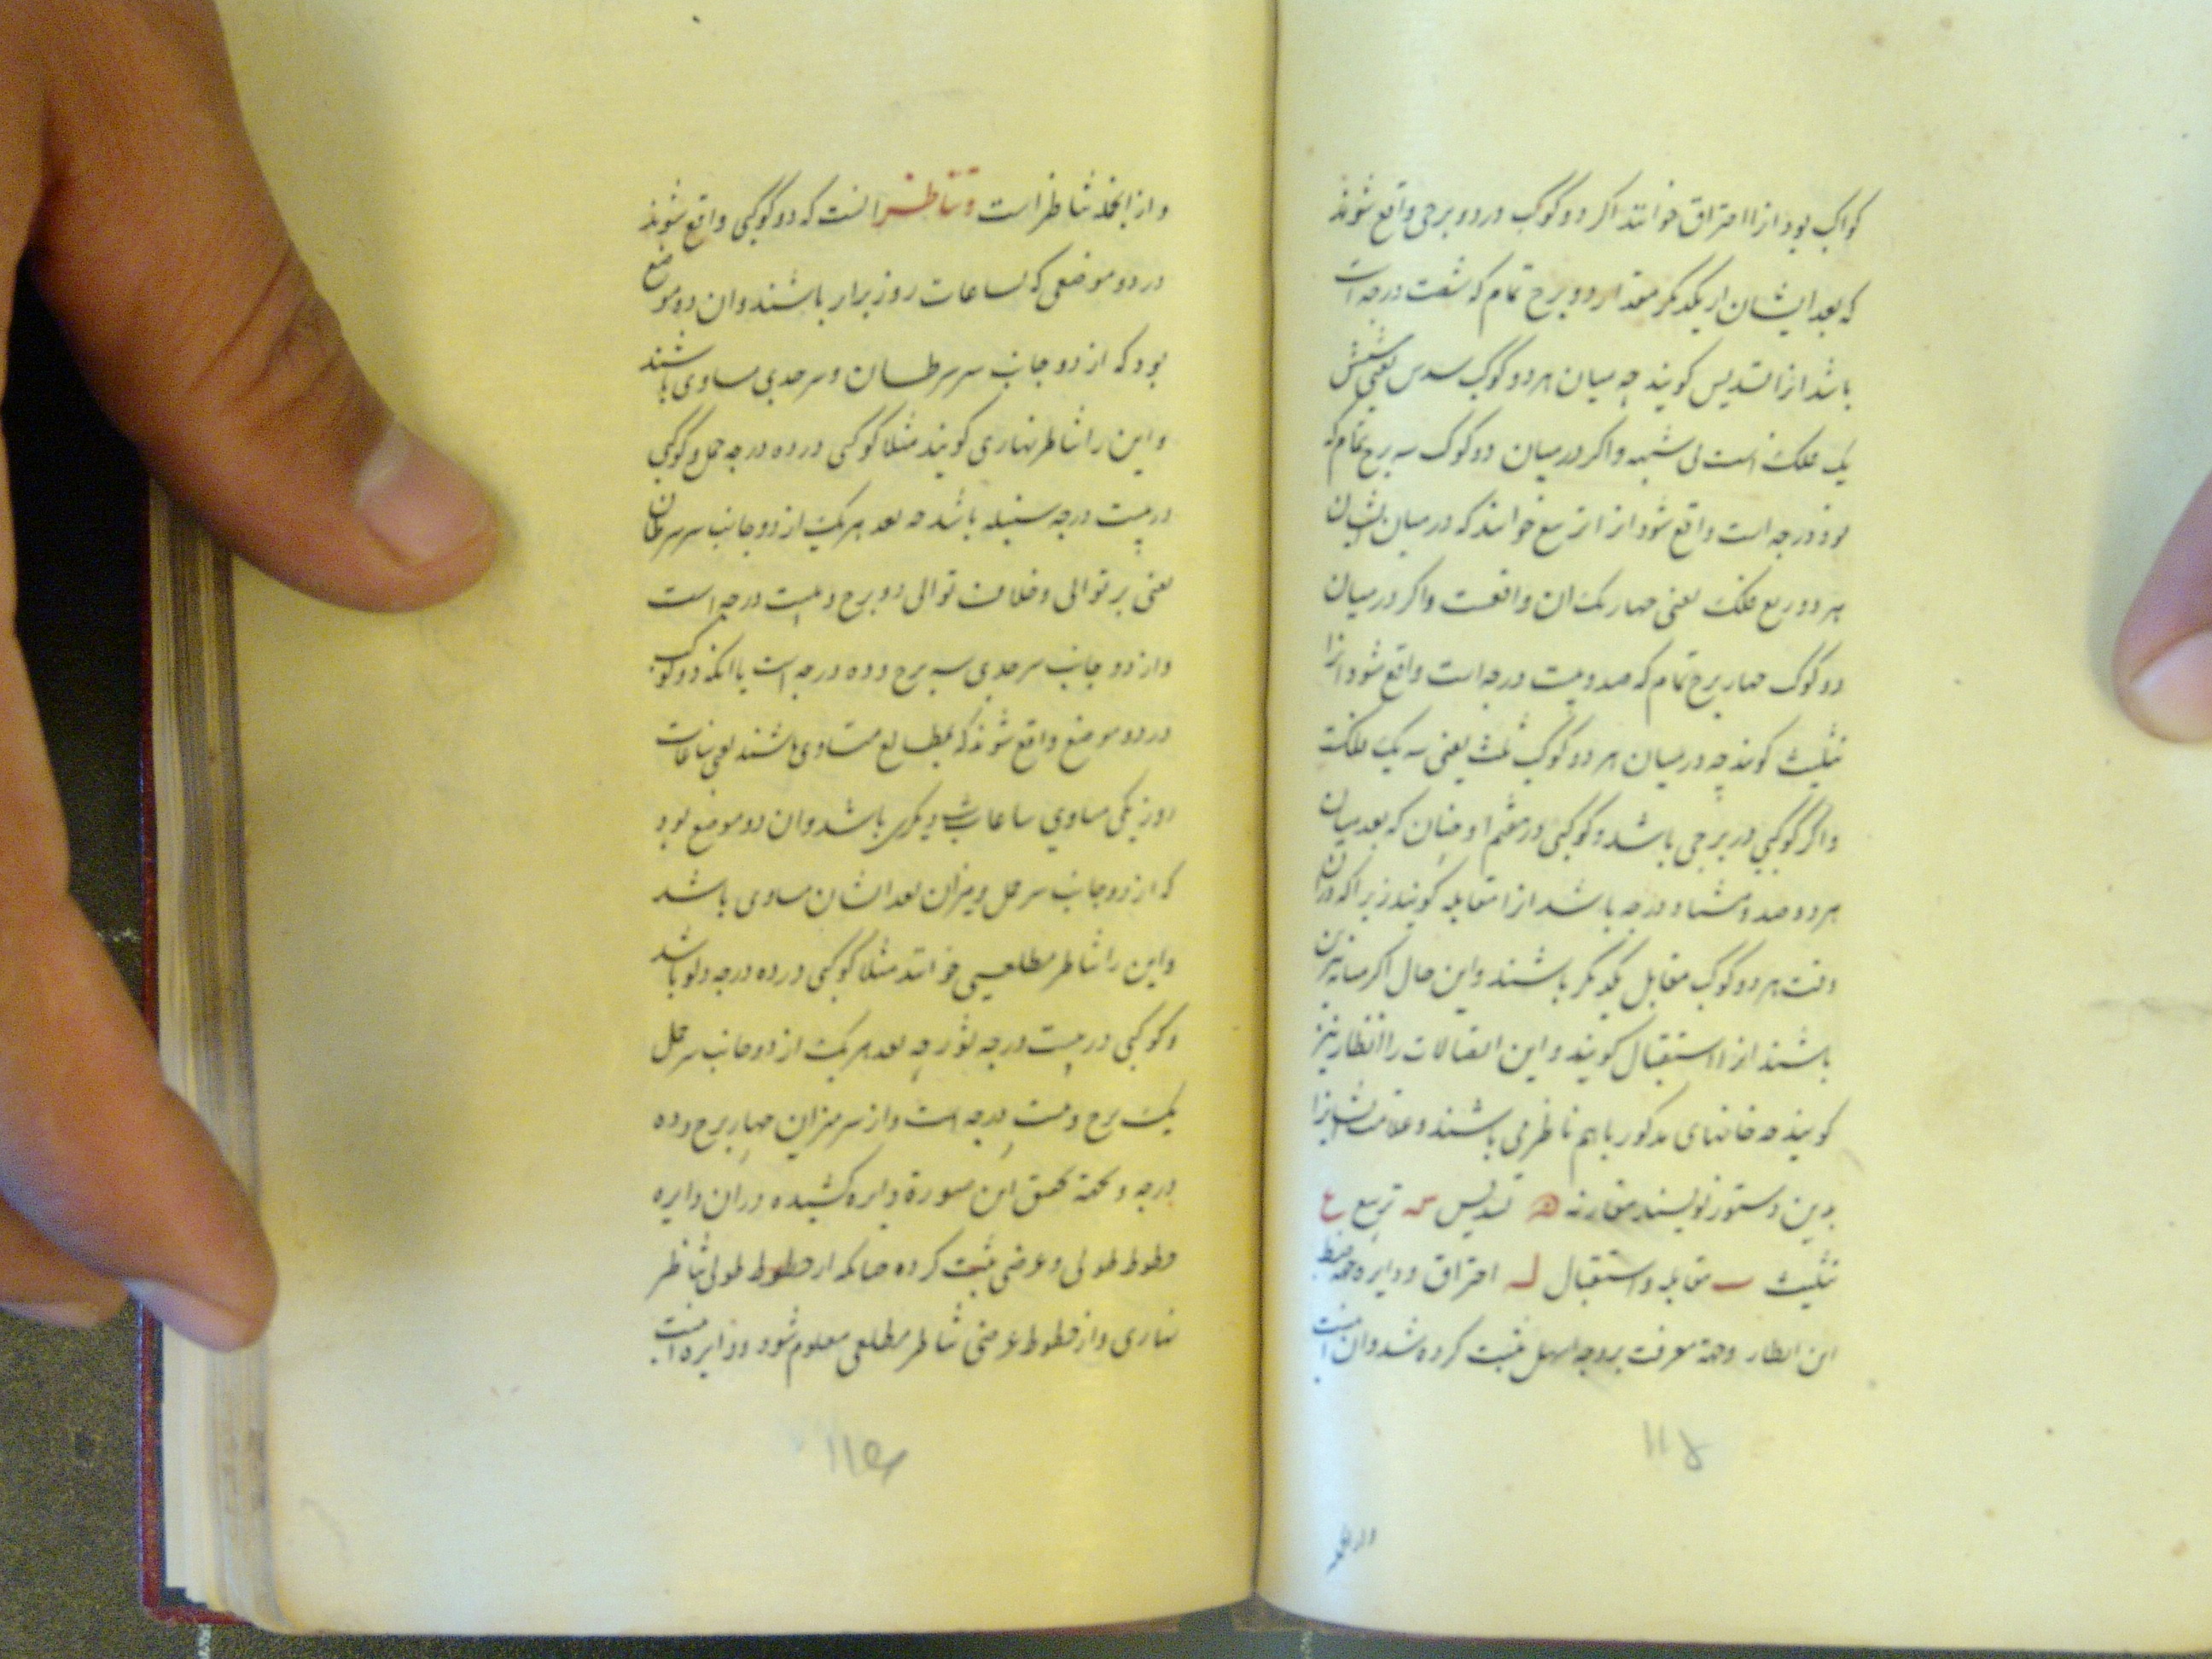 کواکب بود انرا احتراق خوانند اکر دو کوکب در دو برجی واقع شوند
که بعد ایشان از یکدیکر مقدار دو برج تمام که شصت درجه است
باشد انرا تسدیس کویند چه میان هر دو کوکب سدس یعنی شش
یک فلک است بی شبهه و اکر در میان دو کوکب سه برج تمام که
نود درجه است واقع شود انرا تربیع خوانند که در میان ایشان
هر دو ربع فلک یعنی چهار یک ان واقعست و اکر در میان
دو کوکب چهار برج تمام که صد و بیست درجه است واقع شود انرا
تثلیث کویند چه در میان هر دو کوکب ثلث یعنی سه یک فلکست
و اکر کوکبی در برجی باشد و کوکبی در هفتم او چنان که بعد میان
هر دو صد و هشتاد درجه باشد انرا مقابله کویند زیرا که دران
وقت هر دو کوکب مقابل یکدیکر باشند و این حال اکر میانه نیرین
باشند انرا استقبال کویند و این اتصالات را انظار نیز
کویند چه خانهای مذکور با هم ناظر می باشند و علامت ایشانرا
بدین دستور نویسند مقارنه ه تسدیس س تربیع ع
تثلیث ث مقابله و استقبال ل احتراق و دایره جهة ضبط
این انظار و جهة معرفت بروجه اسهل مثبت کرده شد و ان اینست
۱۱۸
و از انجمله
و از انجمله تناظر است و تناظر انست که دو کوکبی واقع شوند
در دو موضعی که بساعات روز برابر باشند و ان دو موضع
بود که از دو جانب سر سرطان و سر جدی مساوی باشند
و این را تناظر نهاری کویند مثلا کوکبی در ده درجه حمل و کوکبی
در بیست درجه سنبله باشد چه بعد هر یک از دو جانب سر سرطان
یعنی بر توالی و خلاف توالی دو برج و بیست درجه است
و از دو جانب سر جدی سه برج و ده درجه است یا انکه دو کوکب
در دو موضع واقع شوند که بمطالع متساوی باشند یعنی ساعات
روز یکی مساوی ساعات شب دیکری باشد و ان دو موضع بود
که از دو جانب سر حمل و میزان بعد ایشان مساوی باشد
و این را تناظر مطلعی خوانند مثلا کوکبی در ده درجه دلو باشد
و کوکبی در بیست درجه ثور چه بعد هر یک از دو جانب سر حمل
یک برج و بیست درجه است و از سر میزان چهار برج و ده
درجه و بجهة تحقق این صورة دایره کشیده و دران دایره
خطوط طولی و عرضی مثبت کرده چنانکه از خطوط طولی تناظر
نهاری و از خطوط عرضی تناظر مطلعی معلوم شود و دایره اینست